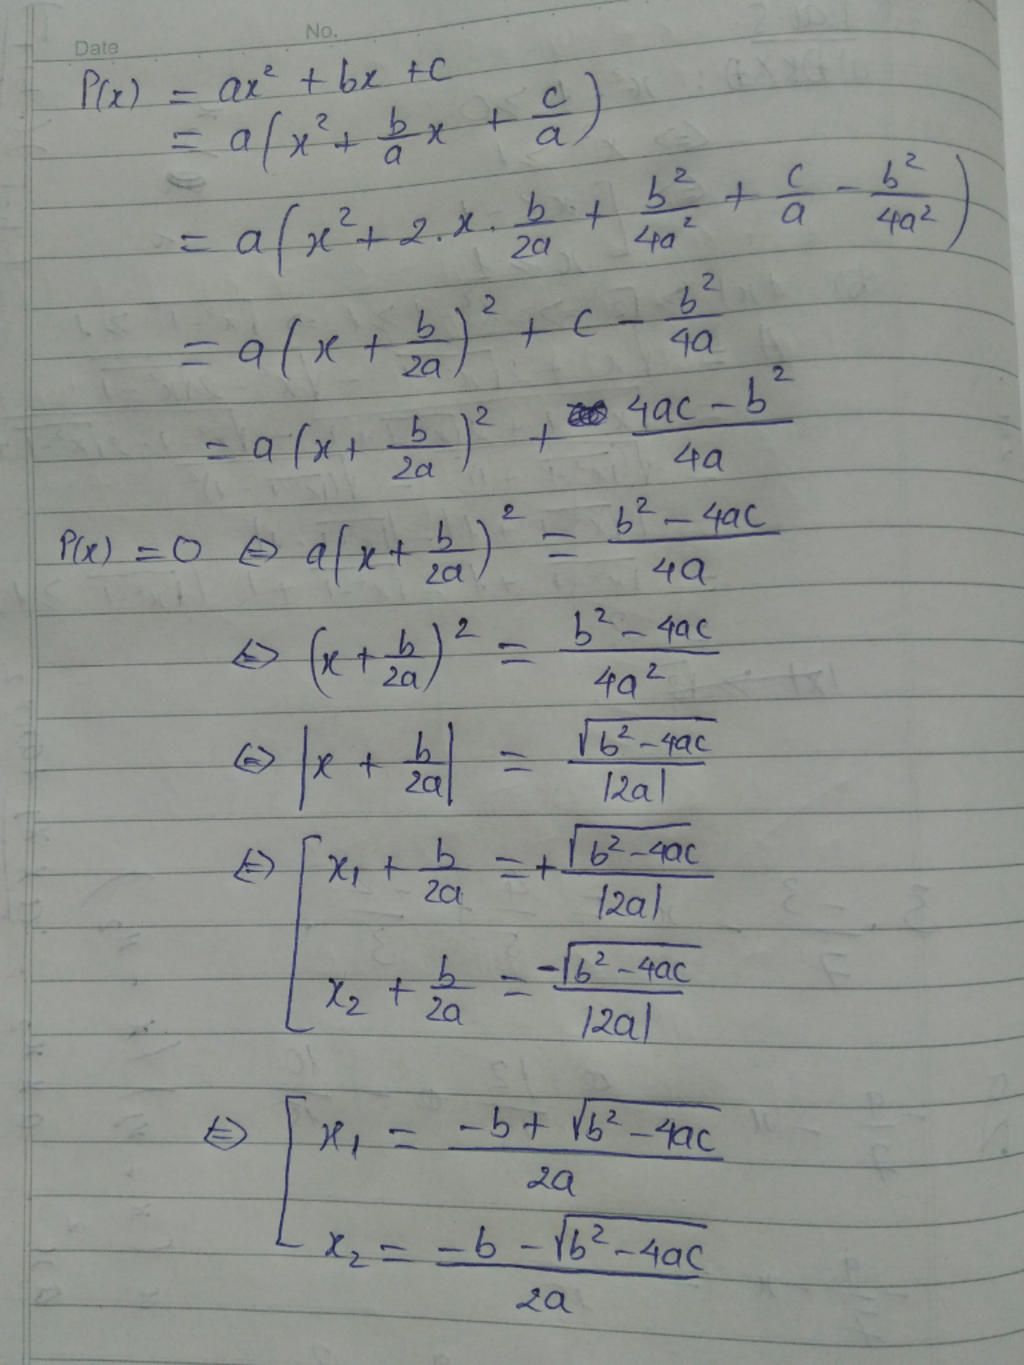 Date No.
P(x) = ax² + bx + c
= a(x² + b/a x + c/a)
= a(x² + 2.x. b/2a + b²/4a² + c/a - b²/4a²)
= a(x + b/2a)² + c - b²/4a
= a(x + b/2a)² + (4ac - b²)/4a
P(x) = 0 ⇔ a(x + b/2a)² = (b² - 4ac)/4a
⇔ (x + b/2a)² = (b² - 4ac)/4a²
⇔ |x + b/2a| = √(b² - 4ac)/|2a|
⇔ [ x₁ + b/2a = +√(b² - 4ac)/|2a|
x₂ + b/2a = -√(b² - 4ac)/|2a|
⇔ [ x₁ = (-b + √(b² - 4ac))/2a
x₂ = (-b - √(b² - 4ac))/2a